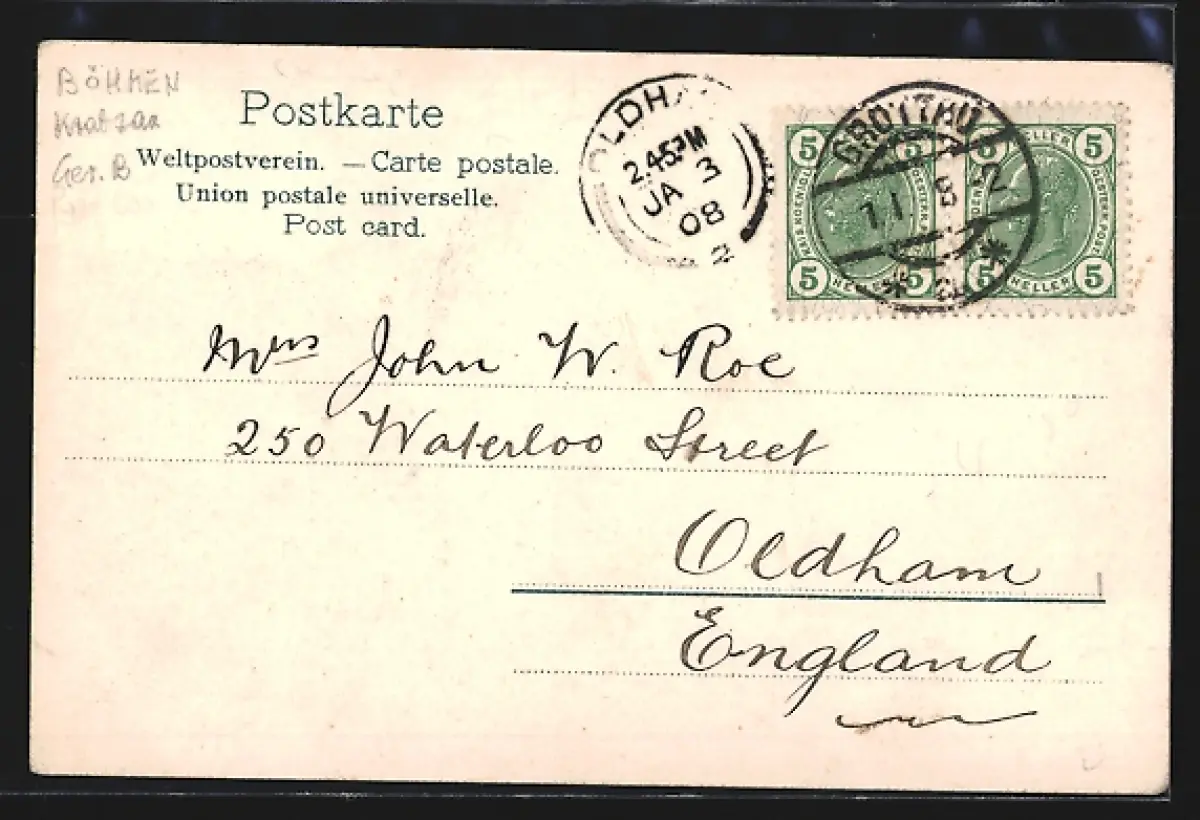 BÖHMEN
Kratzau
Ger. B
Postkarte
Weltpostverein. — Carte postale.
Union postale universelle.
Post card.
OLDHA
2.45PM
JA 3
08
2
GROTTAU
1.I 8
5 5 5 5
HELLER
OESTERR. POST
5 5 5 5
HELLER
Mrs John W. Roe
250 Waterloo Street
Oldham
England